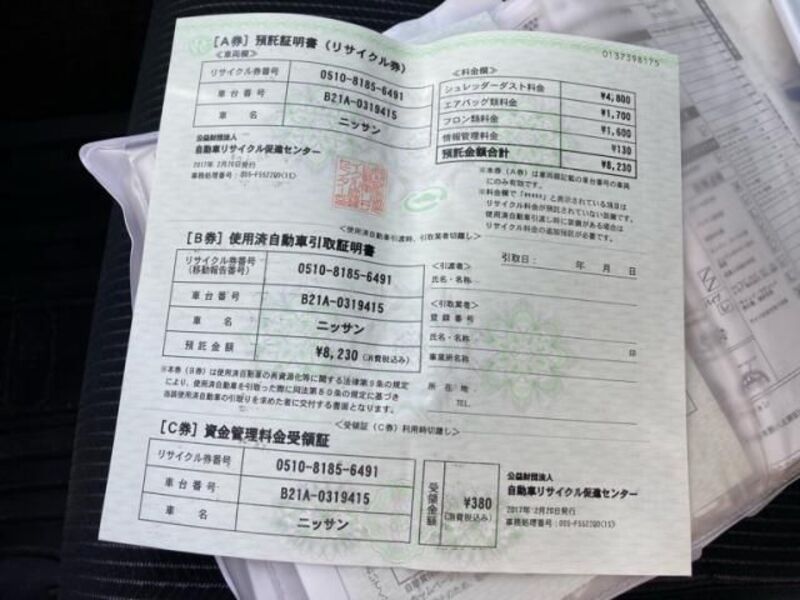 [A券] 預託証明書(リサイクル券)
0137398175
<車両欄>
リサイクル券番号 0510-8185-6491
車台番号 B21A-0319415
車 名 ニッサン
公益財団法人
自動車リサイクル促進センター
2017年 2月20日発行
<料金欄>
シュレッダーダスト料金 ¥4,800
エアバッグ類料金 ¥1,700
フロン類料金 ¥1,600
情報管理料金 ¥130
預託金額合計 ¥8,230
※本券(A券)は車両欄記載の車台番号の車両
にのみ有効です。
※料金欄で「*****」と表示されている項目は
リサイクル料金が預託されていない装備です。
使用済自動車引渡し時に装備がある場合は
リサイクル料金の追加預託が必要です。
<使用済自動車引渡時、引取業者切離し>
[B券] 使用済自動車引取証明書
リサイクル券番号
(移動報告番号) 0510-8185-6491
車台番号 B21A-0319415
車 名 ニッサン
預託金額 ¥8,230 (消費税込み)
※本券(B券)は使用済自動車の再資源化等に関する法律第9条の規定
により、使用済自動車を引取った際に同法第80条の規定に基づき
当該使用済自動車の引取りを求めた者に交付する書面となります。
引取日: 年 月 日
<引渡者>
氏名・名称
<引取業者>
登録番号
氏名・名称 印
事業所名称
所在地
TEL.
<受領証(C券)利用時切離し>
[C券] 資金管理料金受領証
リサイクル券番号 0510-8185-6491
車台番号 B21A-0319415
車 名 ニッサン
受領金額 ¥380
(消費税込み)
公益財団法人
自動車リサイクル促進センター
2017年 2月20日発行